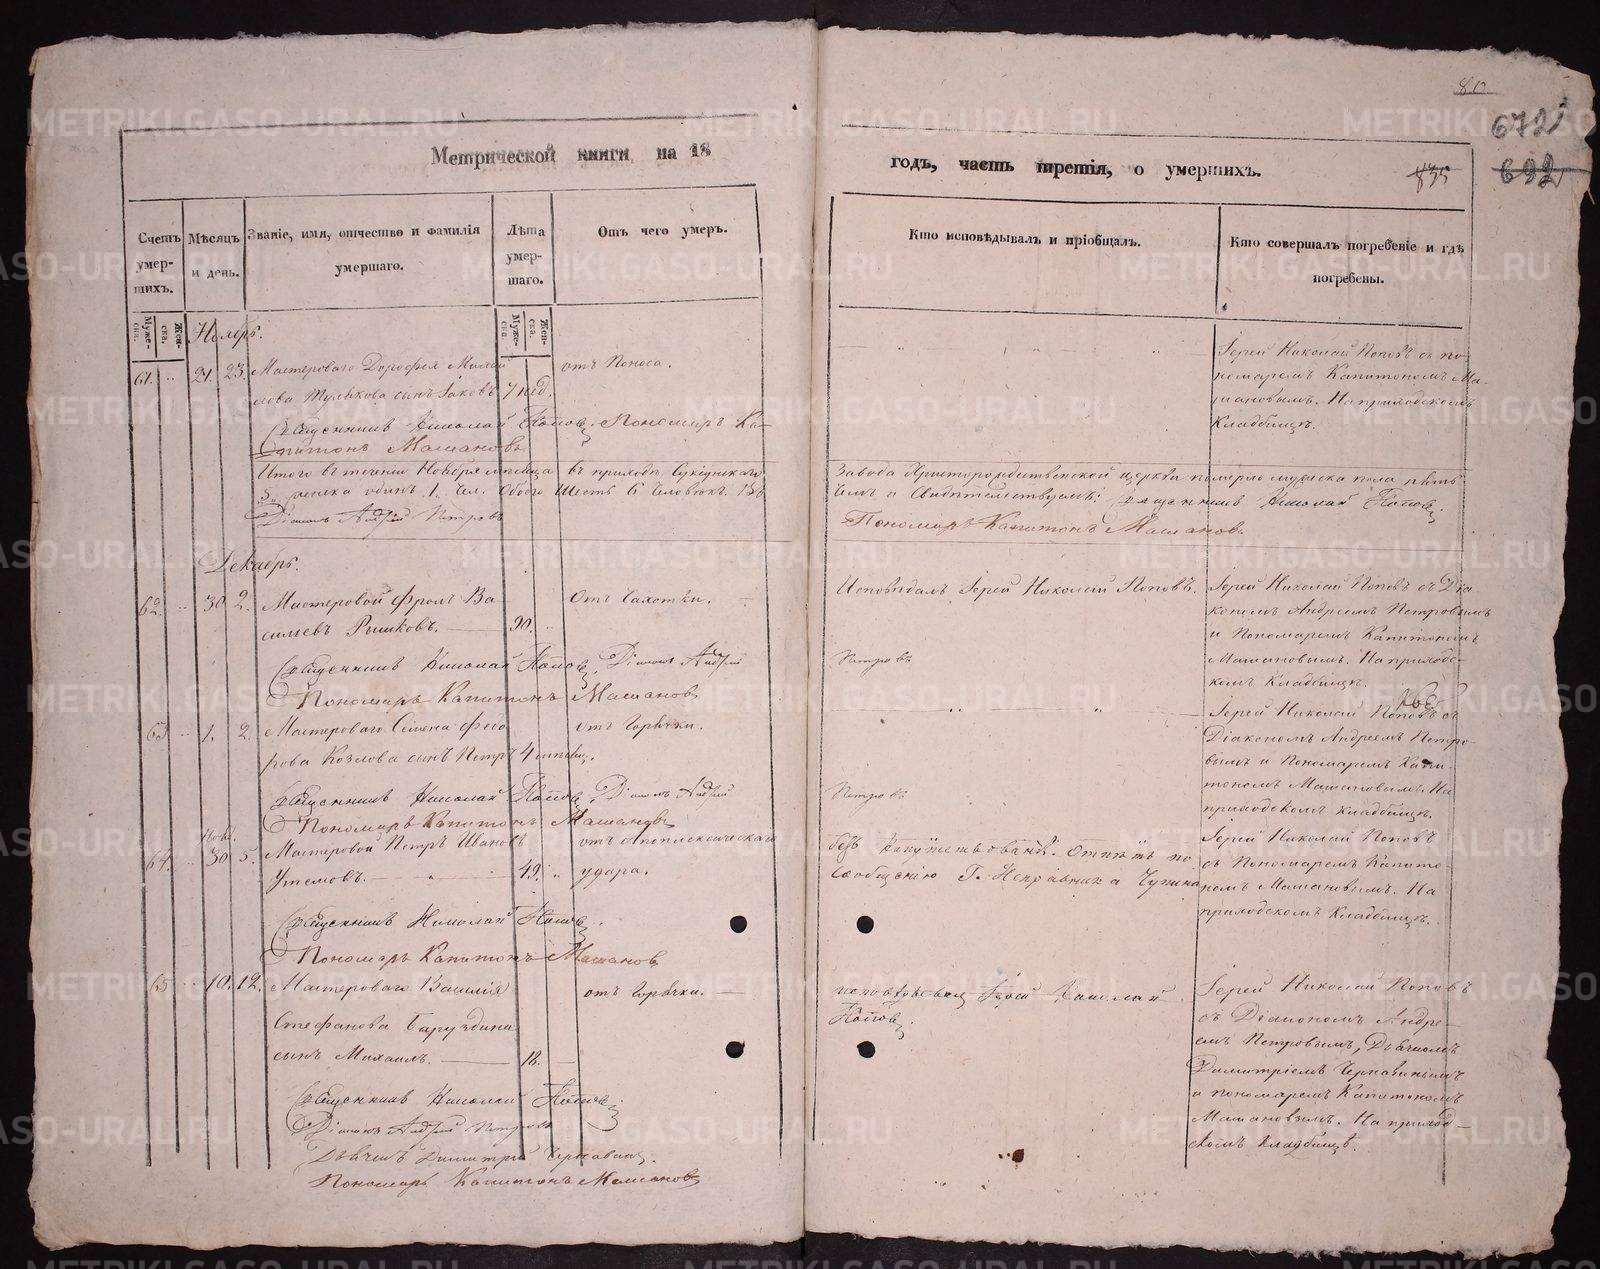 Метрической книги на 18
годъ, часть третія, о умершихъ.
835
672
692
Счетъ умер-шихъ.
Муже-ска.
Жен-ска.
Мѣсяцъ и день.
Званіе, имя, отчество и фамилія умершаго.
Лѣта умер-шаго.
Муже-ска.
Жен-ска.
Отъ чего умеръ.
Кто исповѣдывалъ и пріобщалъ.
Кто совершалъ погребеніе и гдѣ погребены.
Ноябрь.
61. 21. 23. Мастероваго Дорофея
сынъ Іаковъ 7 нед.
отъ Поноса.
Іерей Николай Поповъ съ по-
номаремъ Капитономъ Ма-
шановымъ. На приходскомъ
Кладбищѣ.
Священникъ Николай Поповъ. Пономарь Ка-
питонъ Машановъ
Итого въ теченіи Ноября мѣсяца въ приходѣ Суксунскаго
Завода Христорождественской церкви померло мужеска пола пять
5, женска одинъ 1, Чел. Обоего Шесть 6 Человѣкъ. Въ
чемъ и Свидѣтельствуемъ: Священникъ Николай Поповъ.
Діаконъ Андрей Петровъ
Пономарь Капитонъ Машановъ
Декабрь.
62. 30. 2. Мастеровой Фролъ Ва-
сильевъ Рышковъ. 90.
Отъ Чахотки.
Исповѣдалъ Іерей Николай Поповъ.
Іерей Николай Поповъ съ Діа-
кономъ Андреемъ Петровымъ
и Пономаремъ Капитономъ
Машановымъ. На приходс-
комъ Кладбищѣ.
Священникъ Николай Поповъ, Діаконъ Андрей
Петровъ
Пономарь Капитонъ Машановъ
63. 1. 2. Мастероваго Семена Федо-
рова Козлова сынъ Петръ 4
отъ Горячки.
Іерей Николай Поповъ съ
Діакономъ Андреемъ Петро-
вымъ и Пономаремъ Капи-
тономъ Машановымъ. На
приходскомъ кладбищѣ.
Священникъ Николай Поповъ, Діаконъ Андрей
Петровъ
Пономарь Капитонъ Машановъ
Нояб.
64. 30. 5. Мастеровой Петръ Ивановъ
Утемовъ. 49.
отъ Апоплексическаго
удара.
безъ напутствованія. Отпѣтъ по
сообщенію Г. Исправника Чупина
Іерей Николай Поповъ
съ Пономаремъ Капито-
номъ Машановымъ. На
приходскомъ Кладбищѣ.
Священникъ Николай Поповъ.
Пономарь Капитонъ Машановъ
65 10. 12. Мастероваго Василія
Стефанова
сынъ Михаилъ. 18.
отъ Горячки.
исповѣдывалъ Іерей Николай
Поповъ.
Іерей Николай Поповъ
съ Діакономъ Андре-
емъ Петровымъ, Дьячкомъ
Димитріемъ Чернавинымъ
и пономаремъ Капитономъ
Машановымъ. На приход-
скомъ кладбищѣ.
Священникъ Николай Поповъ
Діаконъ Андрей Петровъ
Дьячекъ Димитрій Чернавинъ.
Пономарь Капитонъ Машановъ
METRIKI.GASO-URAL.RU